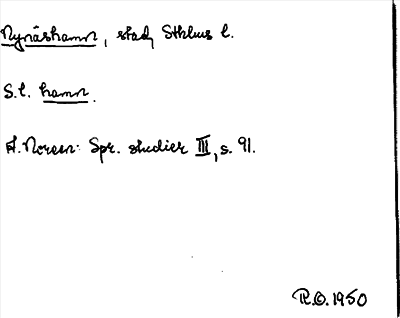 Nynäshamn, stad, Sthlms l.
S.l. hamn.
A. Noreen: Spr. studier III, s. 91.
R.O. 1950